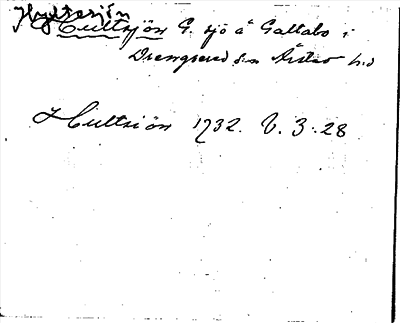 Hyltesjön
Hultsjön G. sjö å Gallabo i
Drengsered sn Årstad hd
Hultsiön 1732. V. 3:28